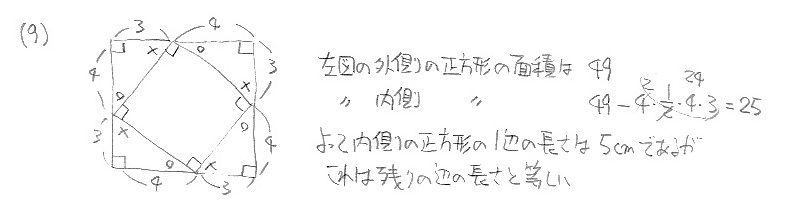 (9)
3 4
4 3
3 4
4 3
左図の外側の正方形の面積は 49
〃 内側 〃 49 - 4・1/2・4・3 = 25
2 24
よって内側の正方形の1辺の長さは5cmであるが
これは残りの辺の長さと等しい